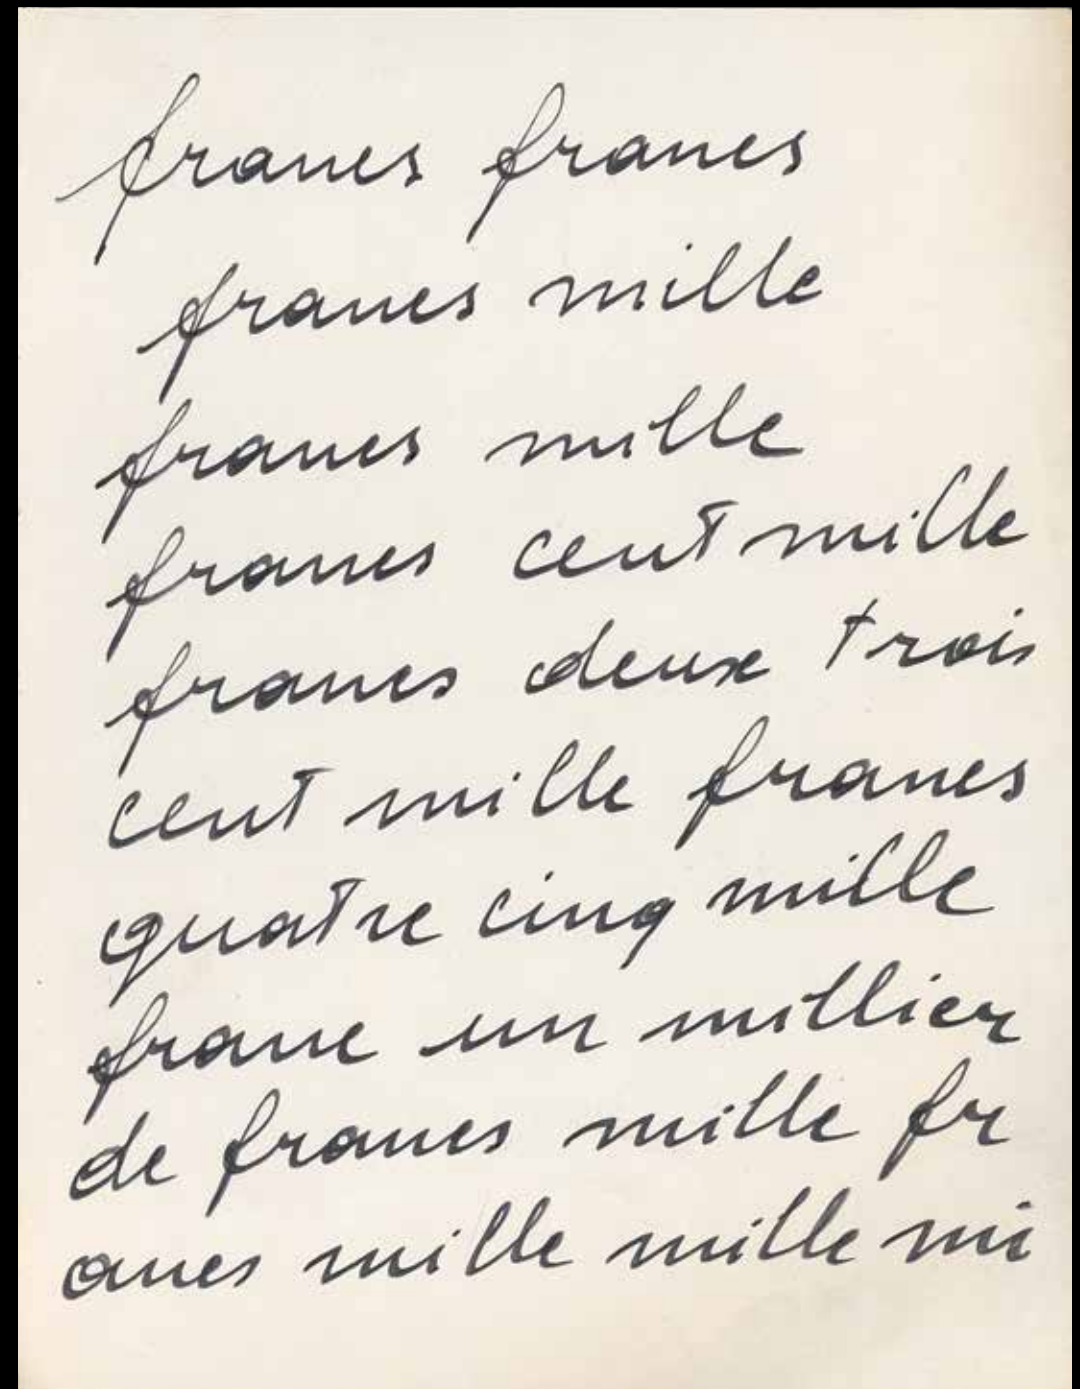 francs francs
francs mille
francs mille
francs cent mille
francs deux trois
cent mille francs
quatre cinq mille
franc un millier
de francs mille fr
ancs mille mille mi